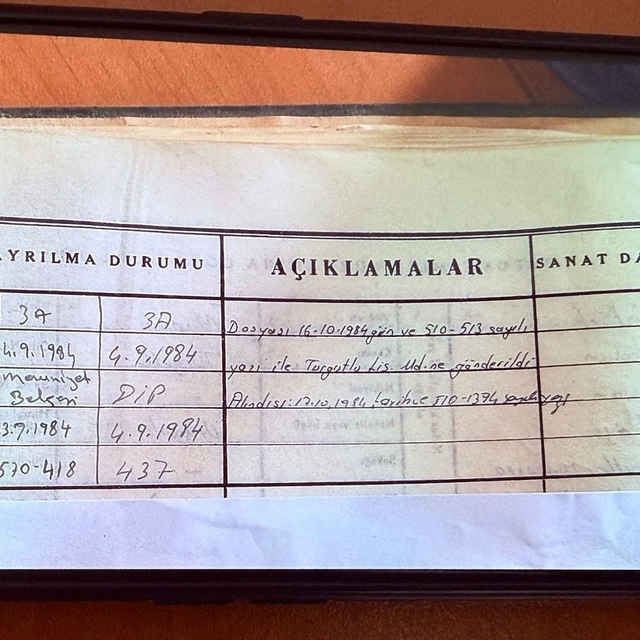 AYRILMA DURUMU AÇIKLAMALAR SANAT DA
3A 3A Dosyası 16.10.1984 gün ve 510-513 sayılı
4.9.1984 4.9.1984 yazı ile Turgutlu Lis. Md.ne gönderildi
Mezuniyet Belgesi DİP Alındısı: 17.10.1984 tarih ve 510-1374 sayılı yazı
3.9.1984 4.9.1984
570-418 437